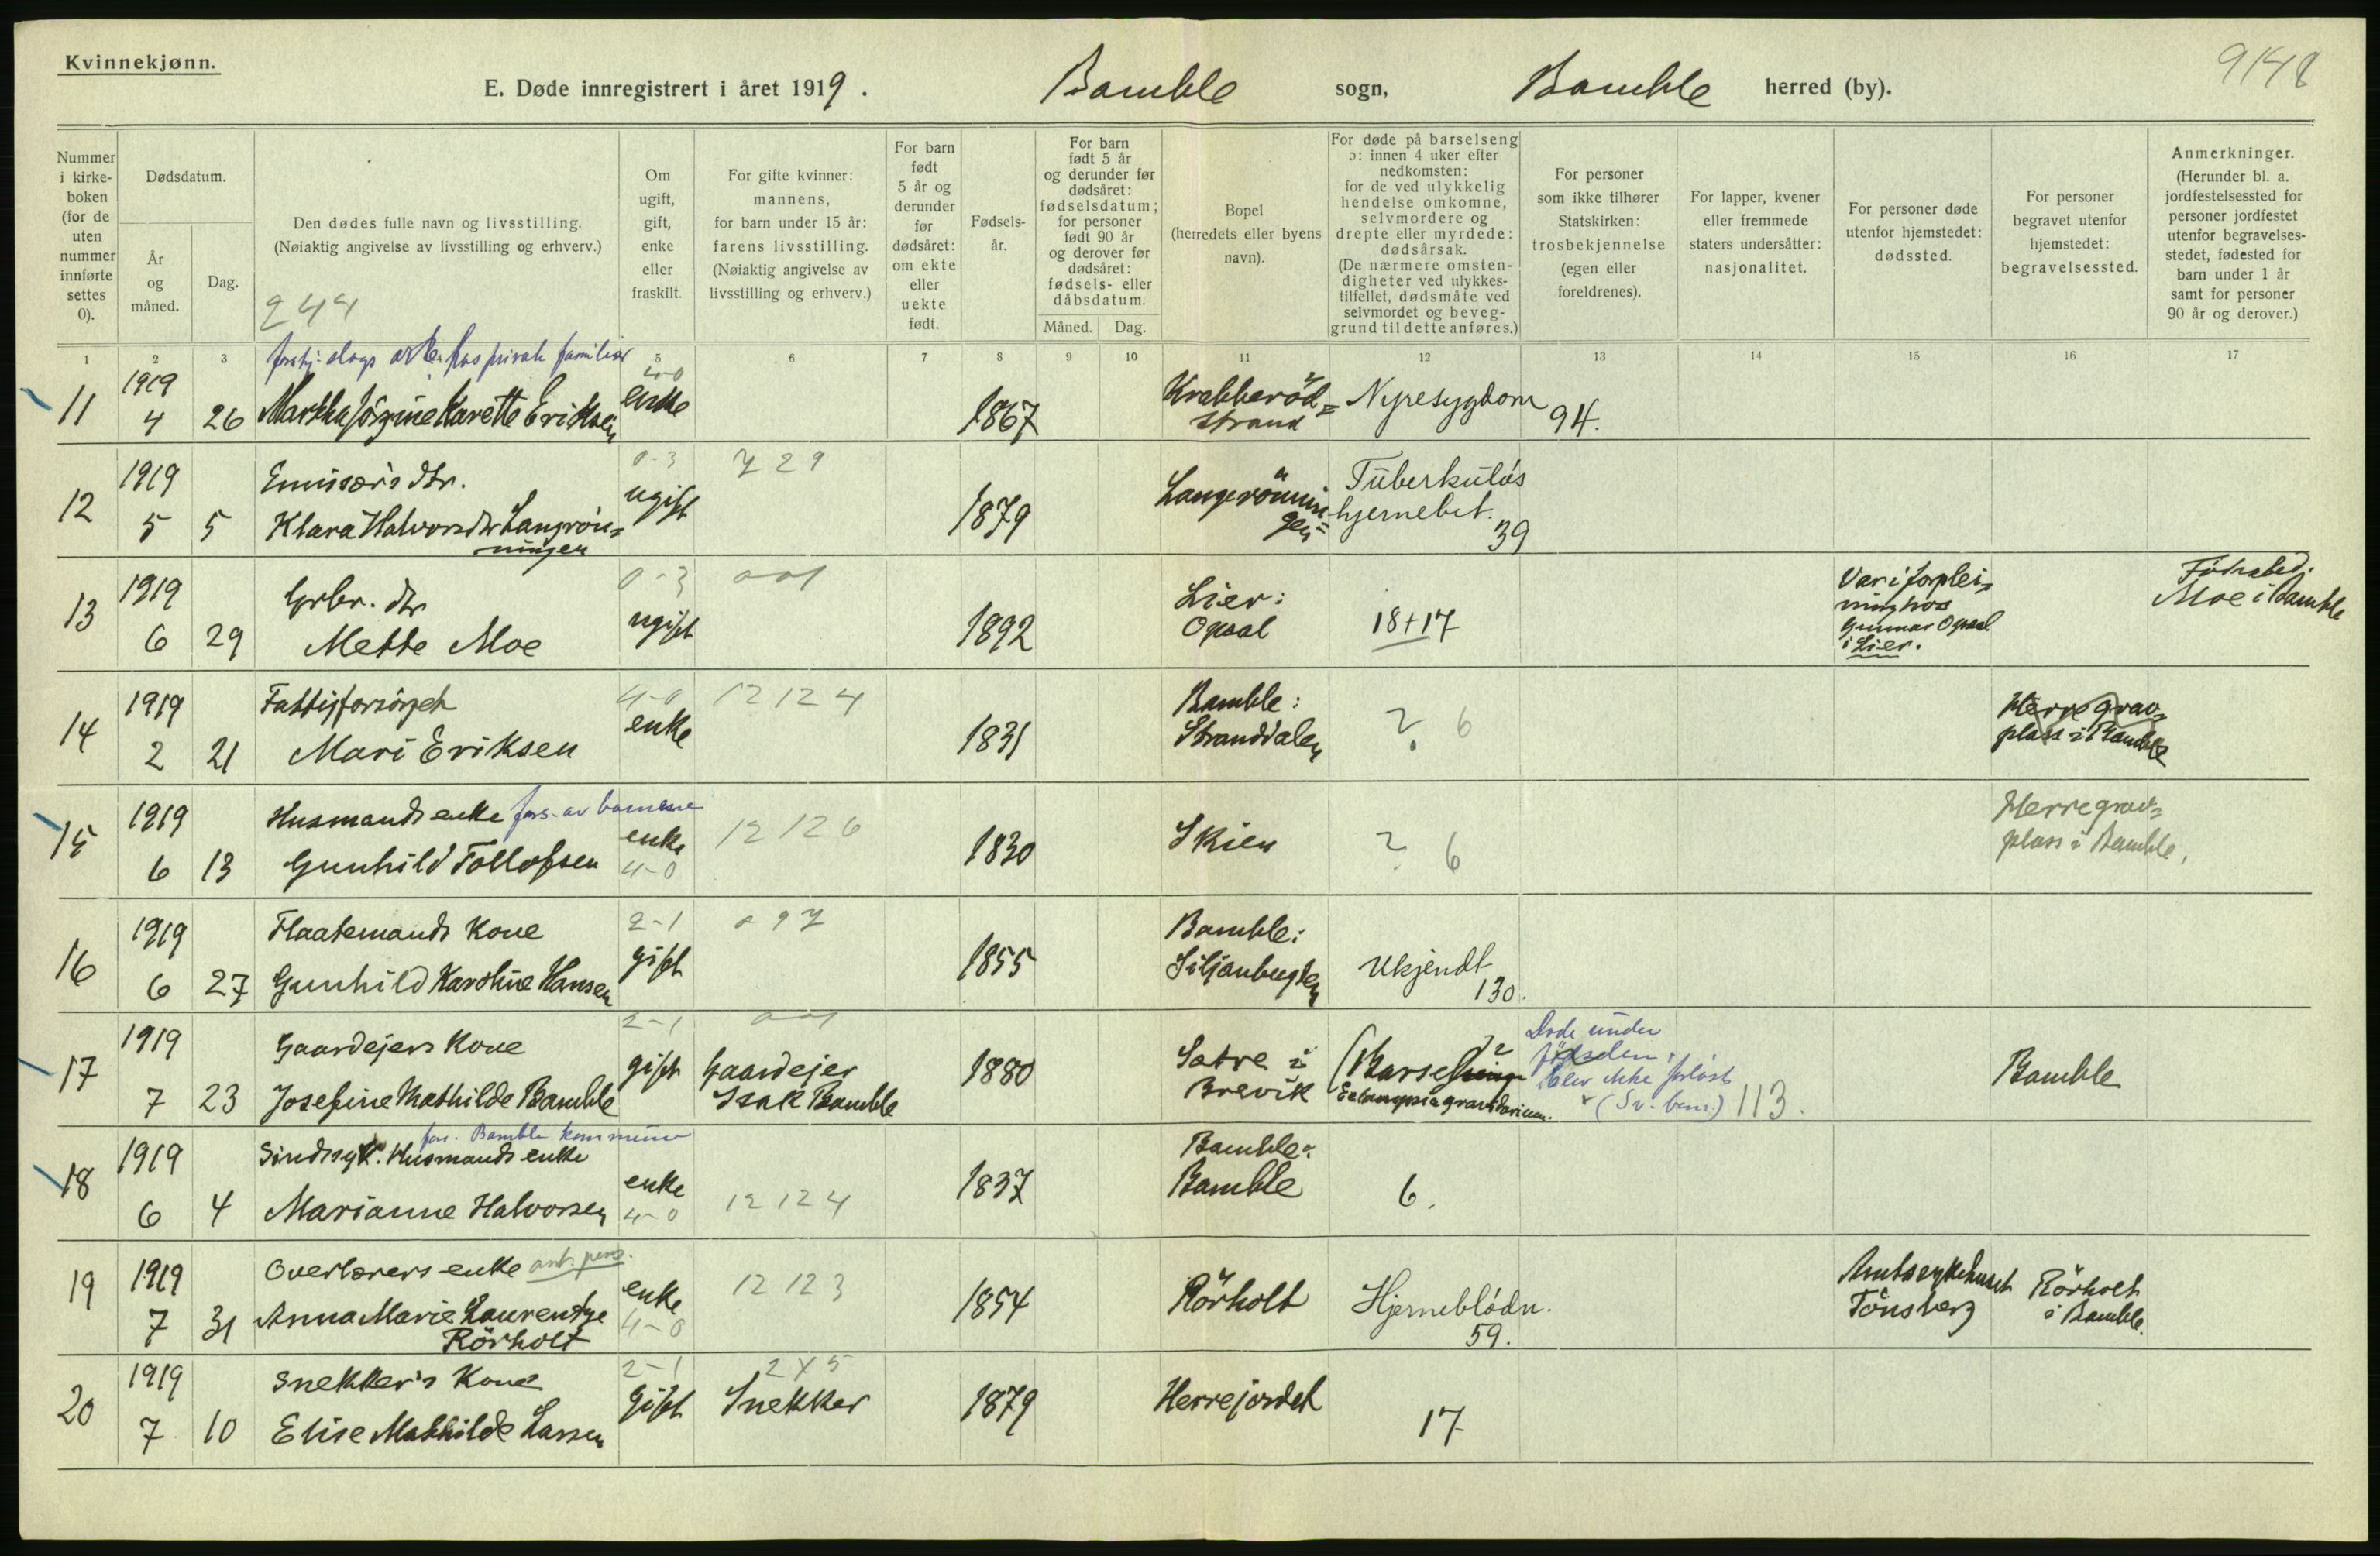 Kvinnekjønn.
9148
E. Døde innregistrert i året 1919. Bamble sogn, Bamble herred (by).
Nummer i kirkeboken (for de uten nummer innførte settes 0).
Dødsdatum.
År og måned.
Dag.
Den dødes fulle navn og livsstilling.
(Nøiaktig angivelse av livsstilling og erhverv.)
244
Om ugift, gift, enke eller fraskilt.
For gifte kvinner: mannens, for barn under 15 år: farens livsstilling. (Nøiaktig angivelse av livsstilling og erhverv.)
For barn født 5 år og derunder før dødsåret: om ekte eller uekte født.
Fødselsår.
For barn født 5 år og derunder før dødsåret: fødselsdatum; for personer født 90 år og derover før dødsåret: fødsels- eller dåbsdatum.
Måned. Dag.
Bopel (herredets eller byens navn).
For døde på barselseng ɔ: innen 4 uker efter nedkomsten: for de ved ulykkelig hendelse omkomne, selvmordere og drepte eller myrdede: dødsårsak. (De nærmere omstendigheter ved ulykkestilfellet, dødsmåte ved selvmordet og beveggrund til dette anføres.)
For personer som ikke tilhører Statskirken: trosbekjennelse (egen eller foreldrenes).
For lapper, kvener eller fremmede staters undersåtter: nasjonalitet.
For personer døde utenfor hjemstedet: dødssted.
For personer begravet utenfor hjemstedet: begravelsessted.
Anmerkninger. (Herunder bl. a. jordfestelsessted for personer jordfestet utenfor begravelsesstedet, fødested for barn under 1 år samt for personer 90 år og derover.)
1 2 3 5 6 7 8 9 10 11 12 13 14 15 16 17
forskj. slags arb. hos private familier
11 1919 4 26 Martha Jörgine Karette Eriksen 4-0 enke 1867 Krabberöd= strand Nyresygdom 94.
12 1919 5 5 Emissærs dtr. Klara Halvorsdtr Langrön= ningen 0-3 ugift 729 1879 Langerönnin gen= Tüberkulös hjernebet. 39
13 1919 6 29 Grbr. dtr Mette Moe 0-3 ugift 001 1892 Lier: Opsal 18+17 Var i forplei= ning hos Gunnar Opsal i Lier. Födested: Moe i Bamble
14 1919 2 21 Fattigforsörget Mari Eriksen 4-0 enke 12 12 4 1831 Bamble: Stranddalen ? 6 Herre grav= plass i Bamble
15 1919 6 13 Husmands enke fors. av barnene Gunhild Tollofsen enke 4-0 12 12 6 1830 Skien ? 6 Herre grav= plass i Bamble,
16 1919 6 27 Flaatemands Kone Gunhild Karoline Hansen 2-1 gift 097 1855 Bamble: Siljanbugten Ukjendt 130.
17 1919 7 23 Gaardejers Kone Josefine Mathilde Bamble 2-1 gift 001 Gaardejer Isak Bamble 1880 Brevik Eclampsia gravidarium. Döde under födselen, blev ikke forlöst (Sv. ben.) 113. Bamble
18 1919 6 4 Sindssyk. Husmands enke fors. Bamble kommune Marianne Halvorsen enke 4-0 12 12 4 1837 Bamble: Bamble 6.
19 1919 7 31 Overlærers enke Anna Marie Laurentze Rörholt enke 4-0 12 12 3 1854 Rörholt Hjerneblödn. 59. Amtssykehuset Tönsberg Rörholt i Bamble.
20 1919 7 10 Snekker's Kone Elise Mathilde Larsen 2-1 gift 2X5 Snekker 1879 Herrejordet 17